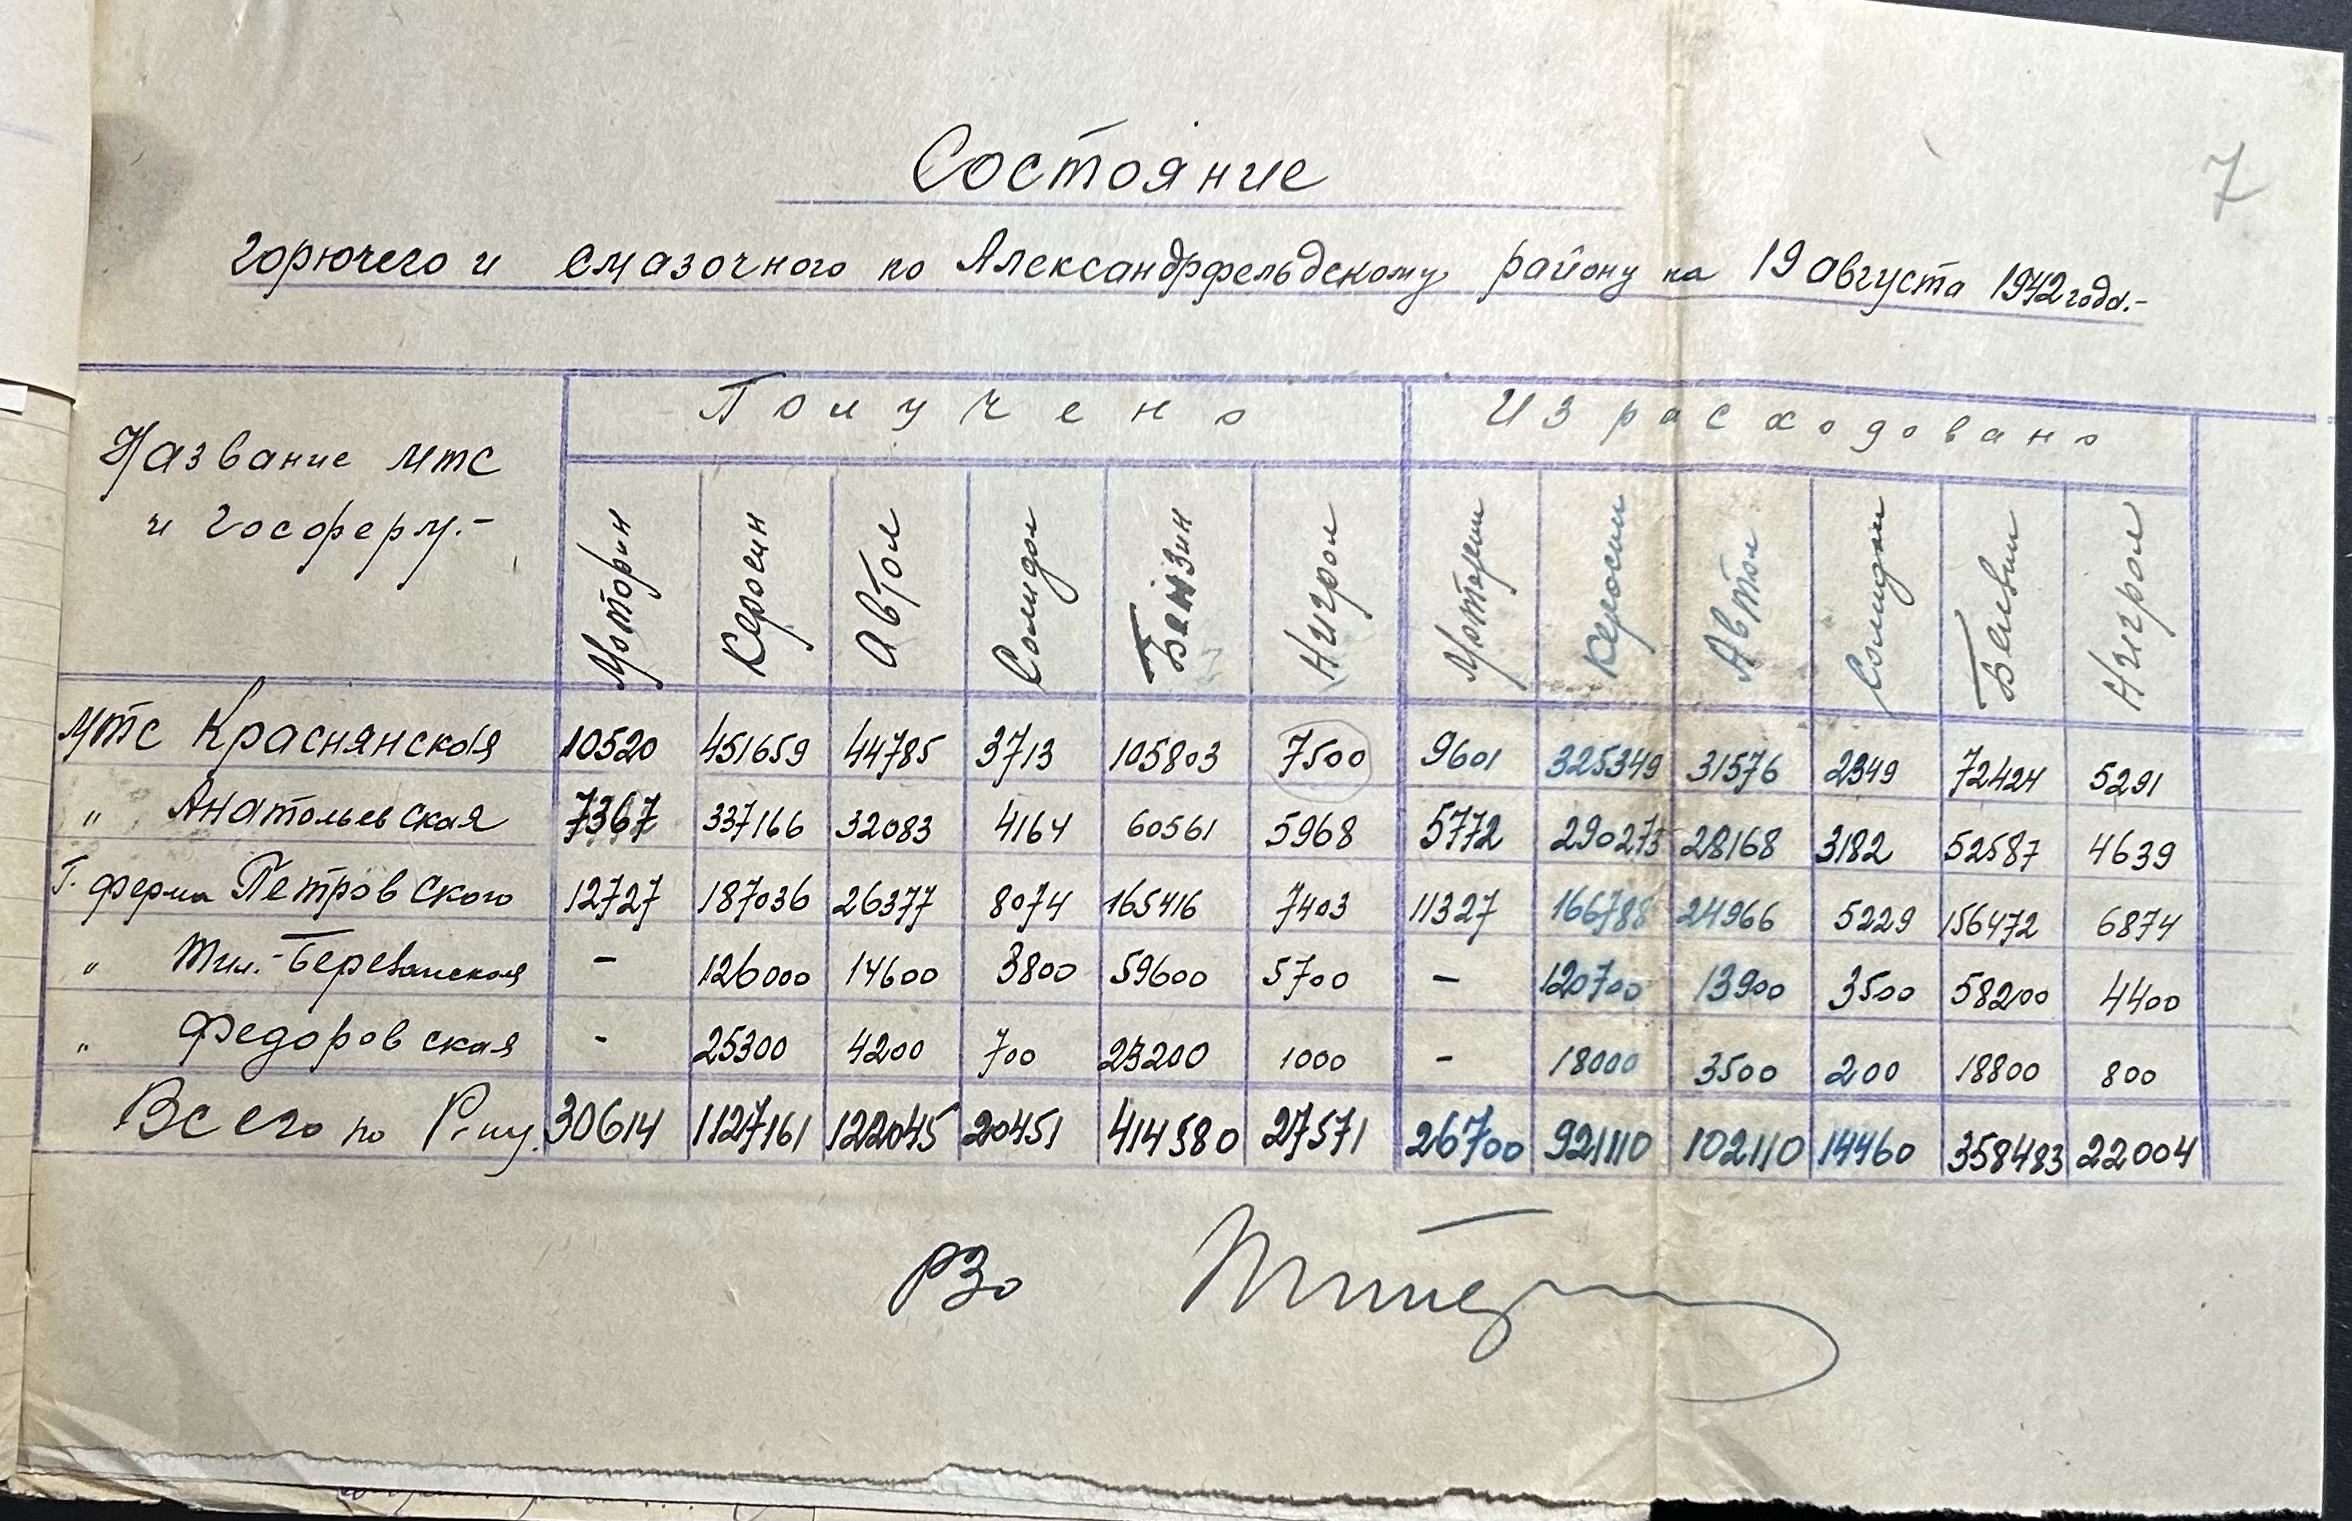 7
Состояние
горючего и смазочного по Александрфельдскому району на 19 августа 1942 года.-
Название МТС и госферм.- Получено Израсходовано
Моторин Керосин Автол Солидол Бензин Нигрол Моторин Керосин Автол Солидол Бензин Нигрол
МТС Краснянская 10520 451659 44785 3713 105803 7500 9601 325349 31576 2349 72424 5291
" Анатольевская 7367 337166 32083 4164 60561 5968 5772 290275 28168 3182 52587 4639
Г. ферма Петровского 12727 187036 26377 8074 165416 7403 11327 166788 24966 5229 156472 6874
" Тил.-Березанская - 126000 14600 3800 59600 5700 - 120700 13900 3500 58200 4400
" Федоровская - 25300 4200 700 23200 1000 - 18000 3500 200 18800 800
Всего по Р-ну. 30614 1127161 122045 20451 414580 27571 26700 921110 102110 14460 358483 22004
РЗО